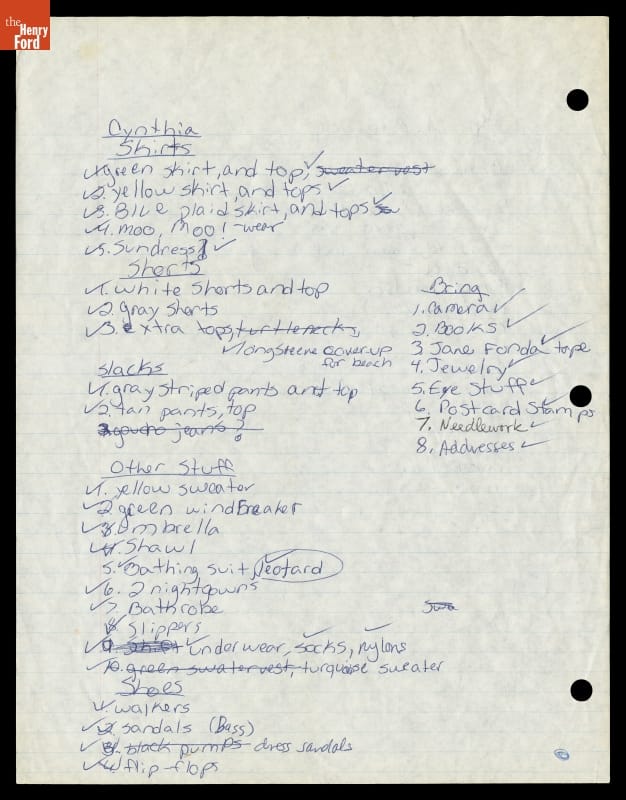 the Henry Ford
Cynthia
Skirts
1. green skirt, and top, sweater vest
2. yellow skirt, and tops
3. Blue plaid skirt, and tops
4. moo, moo!-wear
5. Sundress!
Shorts
1. white shorts and top
2. gray shorts
3. extra tops, turtlenecks,
longsleeve cover-up
for beach
slacks
1. gray striped pants and top
2. tan pants, top
3. gaucho jeans?
Other Stuff
1. yellow sweater
2. green windbreaker
3. umbrella
4. Shawl
5. Bathing suit, leotard
6. 2 nightgowns
7. Bathrobe
8. Slippers
9. underwear, socks, nylons
10. green swater vest, turquoise sweater
Shoes
1. walkers
2. sandals (Bass)
3. black pumps dress sandals
4. flip-flops
Bring
1. camera
2. Books
3. Jane Fonda tape
4. Jewelry
5. Eye Stuff
6. Postcard Stamps
7. Needlework
8. Addresses